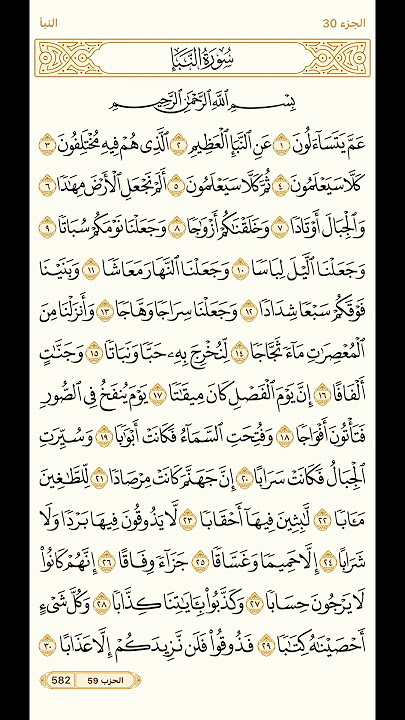 الجزء 30
النبأ
سُورَةُ النَّبَإِ
بِسْمِ اللَّهِ الرَّحْمَٰنِ الرَّحِيمِ
عَمَّ يَتَسَآءَلُونَ ١ عَنِ ٱلنَّبَإِ ٱلْعَظِيمِ ٢ ٱلَّذِى هُمْ فِيهِ مُخْتَلِفُونَ ٣
كَلَّا سَيَعْلَمُونَ ٤ ثُمَّ كَلَّا سَيَعْلَمُونَ ٥ أَلَمْ نَجْعَلِ ٱلْأَرْضَ مِهَٰدًا ٦
وَٱلْجِبَالَ أَوْتَادًا ٧ وَخَلَقْنَٰكُمْ أَزْوَٰجًا ٨ وَجَعَلْنَا نَوْمَكُمْ سُبَاتًا ٩
وَجَعَلْنَا ٱلَّيْلَ لِبَاسًا ١٠ وَجَعَلْنَا ٱلنَّهَارَ مَعَاشًا ١١ وَبَنَيْنَا
فَوْقَكُمْ سَبْعًا شِدَادًا ١٢ وَجَعَلْنَا سِرَاجًا وَهَّاجًا ١٣ وَأَنزَلْنَا مِنَ
ٱلْمُعْصِرَٰتِ مَآءً ثَجَّاجًا ١٤ لِّنُخْرِجَ بِهِۦ حَبًّا وَنَبَاتًا ١٥ وَجَنَّٰتٍ
أَلْفَافًا ١٦ إِنَّ يَوْمَ ٱلْفَصْلِ كَانَ مِيقَٰتًا ١٧ يَوْمَ يُنفَخُ فِى ٱلصُّورِ
فَتَأْتُونَ أَفْوَاجًا ١٨ وَفُتِحَتِ ٱلسَّمَآءُ فَكَانَتْ أَبْوَٰبًا ١٩ وَسُيِّرَتِ
ٱلْجِبَالُ فَكَانَتْ سَرَابًا ٢٠ إِنَّ جَهَنَّمَ كَانَتْ مِرْصَادًا ٢١ لِّلطَّٰغِينَ
مَـَٔابًا ٢٢ لَّٰبِثِينَ فِيهَآ أَحْقَابًا ٢٣ لَّا يَذُوقُونَ فِيهَا بَرْدًا وَلَا
شَرَابًا ٢٤ إِلَّا حَمِيمًا وَغَسَّاقًا ٢٥ جَزَآءً وِفَاقًا ٢٦ إِنَّهُمْ كَانُوا۟
لَا يَرْجُونَ حِسَابًا ٢٧ وَكَذَّبُوا۟ بِـَٔايَٰتِنَا كِذَّابًا ٢٨ وَكُلَّ شَىْءٍ
أَحْصَيْنَٰهُ كِتَٰبًا ٢٩ فَذُوقُوا۟ فَلَن نَّزِيدَكُمْ إِلَّا عَذَابًا ٣٠
الحزب 59 582